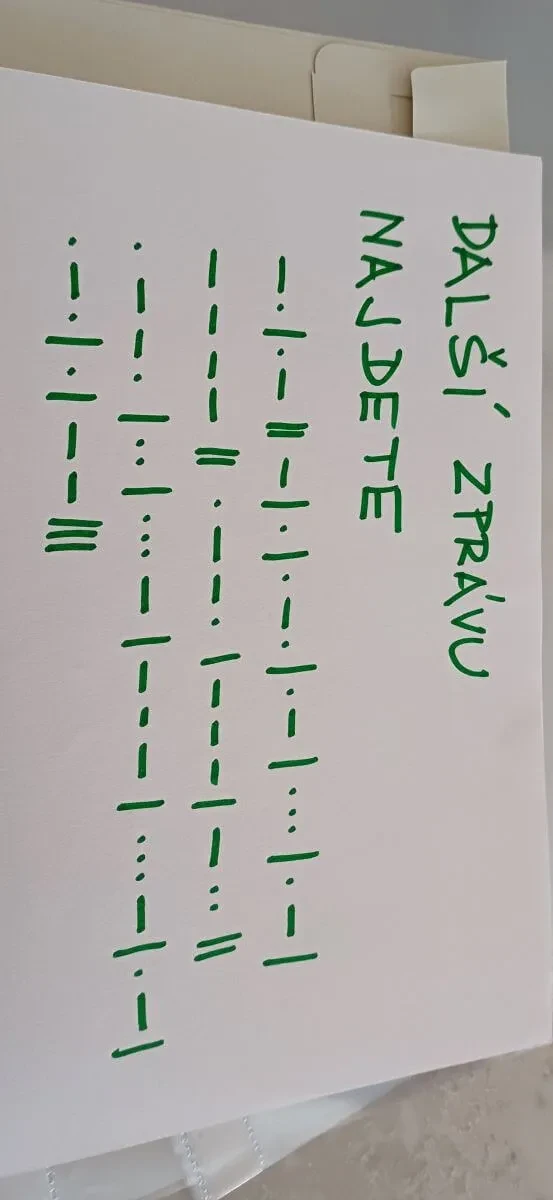 DALŠÍ ZPRÁVU
NAJDETE
−·|·−||−|·|·−·|·−|···|·−|
−−−−||·−−·|−−−|−··||
·−−·|··|···−|−−−|···−|·−|
·−·|·|−−|||